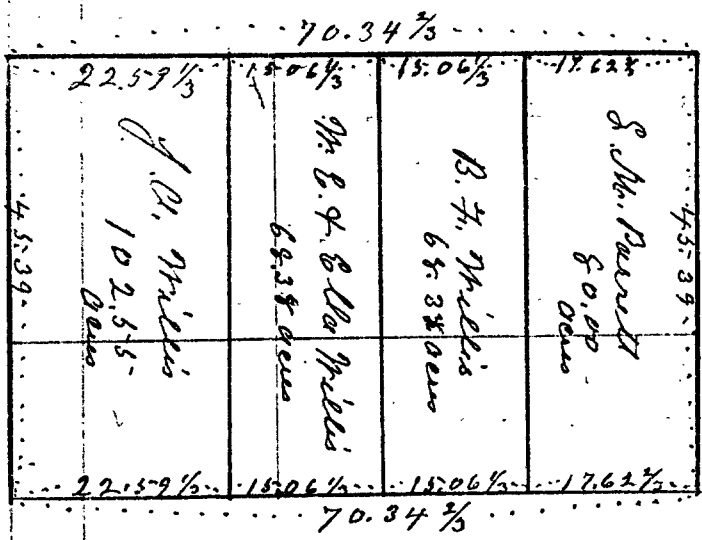 70.34 2/3
22.59 1/3
15.06 1/3
15.06 1/3
17.62 2/3
J. A. Willis
102.55
acres
W. E. & Ella Willis
68.38 acres
B. F. Willis
68.38 acres
E. M. Barrett
80.00
acres
45.39
45.39
22.59 1/3
15.06 1/3
15.06 1/3
17.62 2/3
70.34 2/3